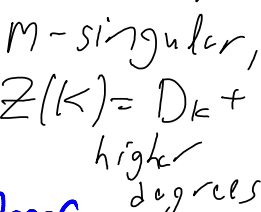 m-singular,
Z(K) = D_K +
higher
degrees